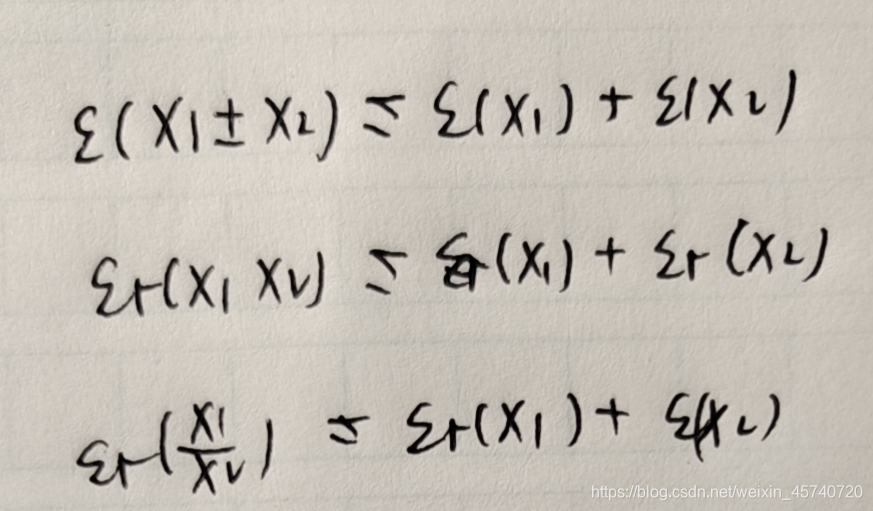 ε(x₁ ± x₂) ≤ ε(x₁) + ε(x₂)
εr(x₁ x₂) ≤ εr(x₁) + εr(x₂)
εr(x₁/x₂) ≤ εr(x₁) + ε(x₂)
https://blog.csdn.net/weixin_45740720